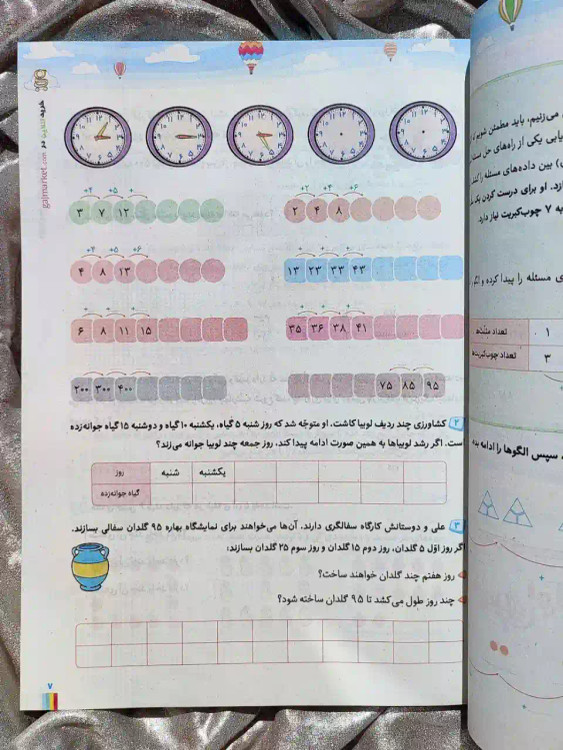 خرید اینترنتی در
gajmarket.com
+۴ +۵ +
۳ ۷ ۱۲
+۲ +۴ +۶
۲ ۴ ۸
+۴ +۵ +۶
۴ ۸ ۱۳
+ + +
۱۳ ۲۳ ۳۳ ۴۳
+ + +
۶ ۸ ۱۱ ۱۵
+ + +
۳۵ ۳۶ ۳۸ ۴۱
۲۰۰ ۳۰۰ ۴۰۰
۷۵ ۸۵ ۹۵
۲ کشاورزی چند ردیف لوبیا کاشت. او متوجّه شد که روز شنبه ۵ گیاه، یکشنبه ۱۰ گیاه و دوشنبه ۱۵ گیاه جوانه‌زده
است. اگر رشد لوبیاها به همین صورت ادامه پیدا کند، روز جمعه چند لوبیا جوانه می‌زند؟
روز شنبه یکشنبه
گیاه جوانه‌زده
۳ علی و دوستانش کارگاه سفالگری دارند. آن‌ها می‌خواهند برای نمایشگاه بهاره ۹۵ گلدان سفالی بسازند.
اگر روز اوّل ۵ گلدان، روز دوم ۱۵ گلدان و روز سوم ۲۵ گلدان بسازند:
روز هفتم چند گلدان خواهند ساخت؟
چند روز طول می‌کشد تا ۹۵ گلدان ساخته شود؟
۷
می‌زنیم، باید مطمئن شویم
یابی یکی از راه‌های حل مسئله
بین داده‌های مسئله را
زد. او برای درست کردن یک
به ۷ چوب‌کبریت نیاز دارد.
ی مسئله را پیدا کرده و
تعداد مثلث‌ها ۱
تعداد چوب‌کبریت‌ها ۳
سپس الگوها را ادامه